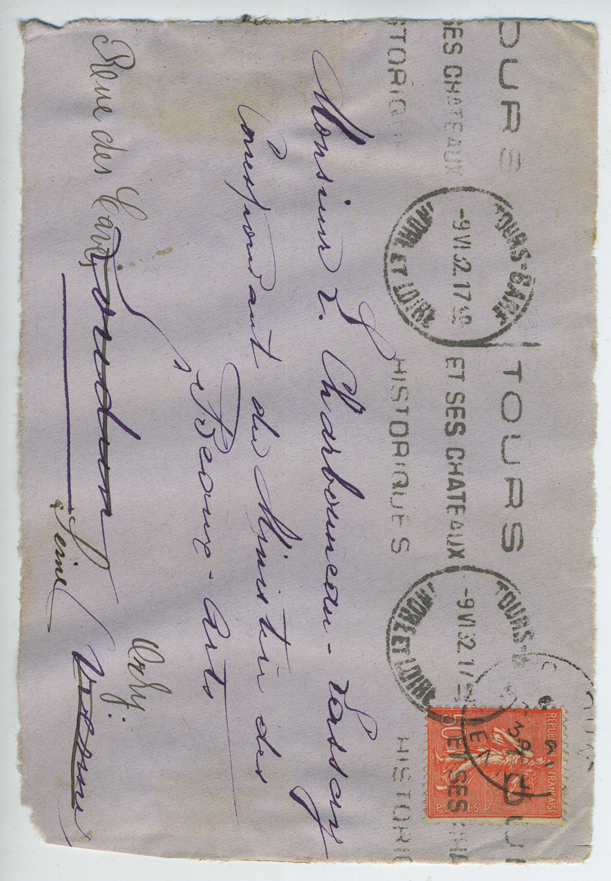 TOURS
ET SES CHATEAUX
HISTORIQUES
TOURS-GARE
-9 VI 32. 17
INDRE ET LOIRE
TOURS
ET SES CHATEAUX
HISTORIQUES
TOURS-GARE
-9 VI 32. 17
INDRE ET LOIRE
ET SES CHA
HISTORIQ
REPUBLIQUE FRANÇAISE
50
POSTES
Monsieur L. Charbonneau-Lassay
Correspondant du Ministère des
Beaux-Arts
Loudun
Vienne
Rue des
Orly
Seine